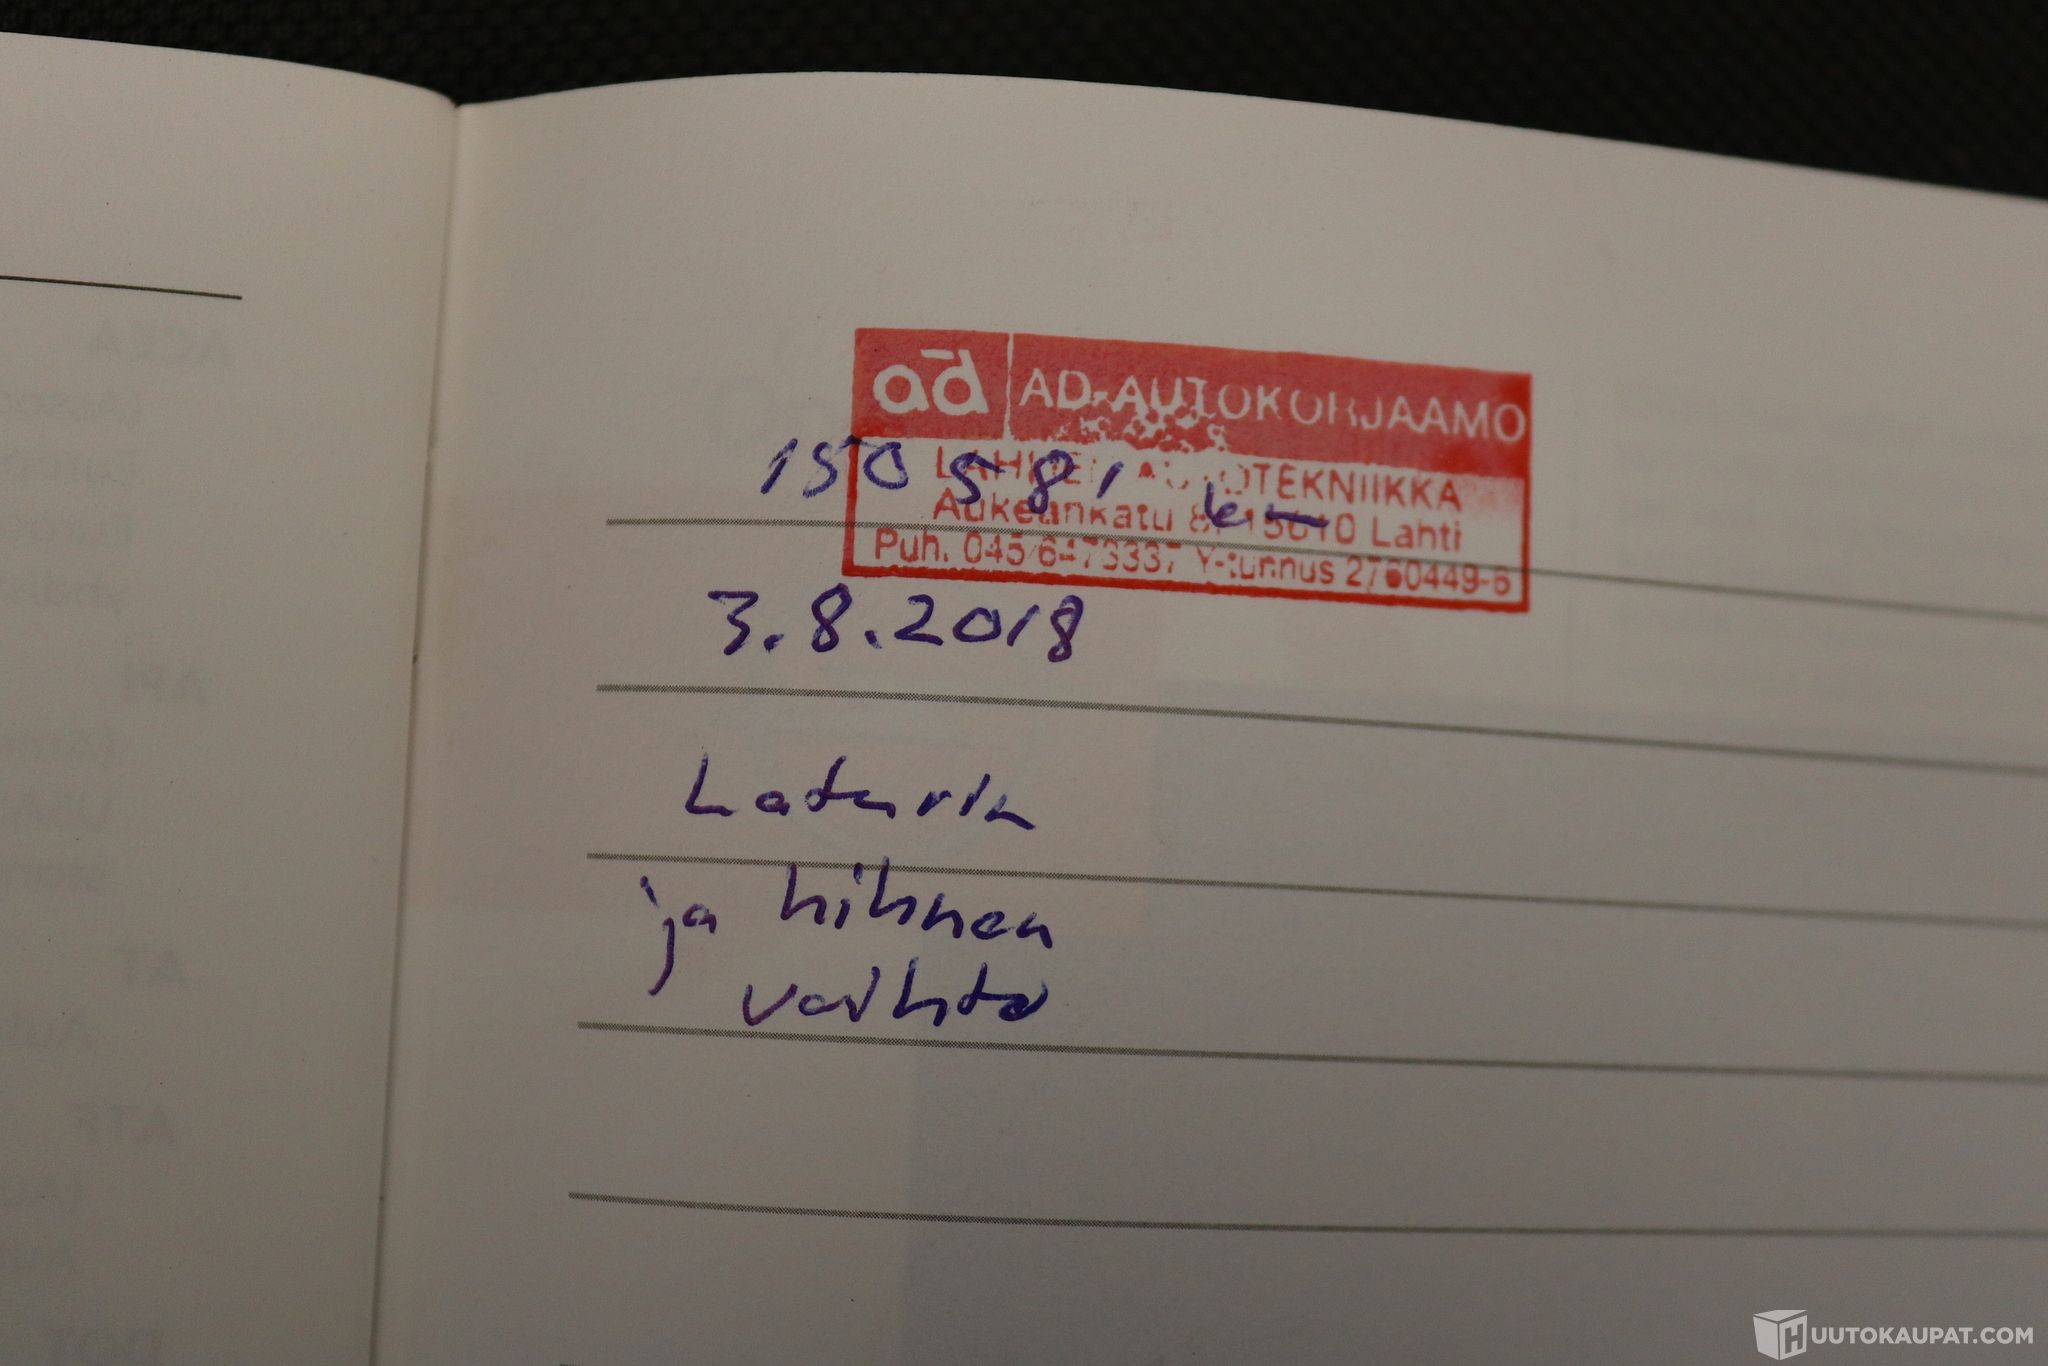 ad AD-AUTOKORJAAMO
LAHDEN AUTOTEKNIIKKA
Aukeankatu 8, 15610 Lahti
Puh. 045/6473337 Y-tunnus 2760449-6
150 581 km
3.8.2018
Laturin
ja hihnan
vaihto
HUUTOKAUPAT.COM